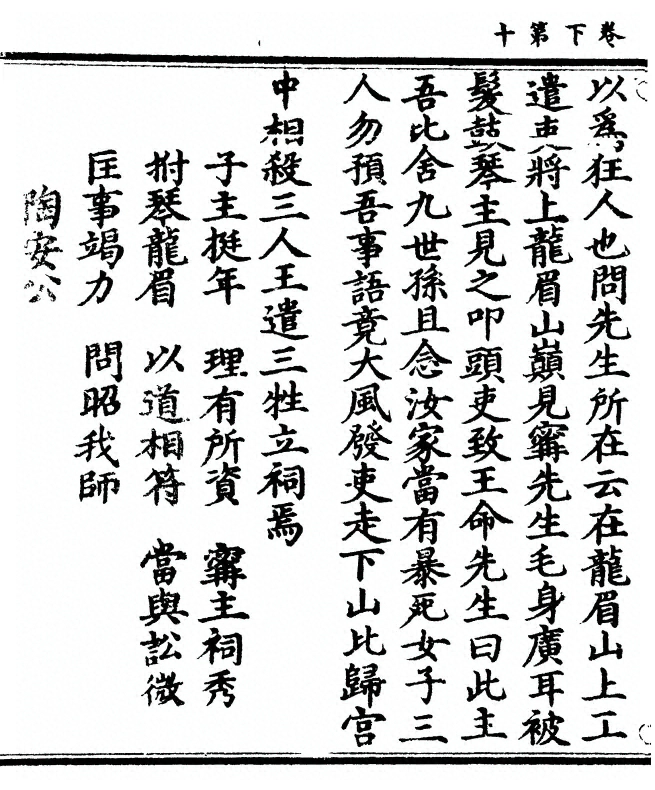 卷下第十
以爲狂人也問先生所在云在龍眉山上工
遣吏將上龍眉山巔見甯先生毛身廣耳被
髮鼓琴主見之叩頭吏致王命先生曰此主
吾比舍九世孫且念汝家當有暴死女子三
人勿預吾事語竟大風發吏走下山比歸宮
中相殺三人王遣三牲立祠焉
子主挺年　理有所資　甯主祠秀
拊琴龍眉　以道相符　當與訟微
匡事竭力　問昭我師
陶安公